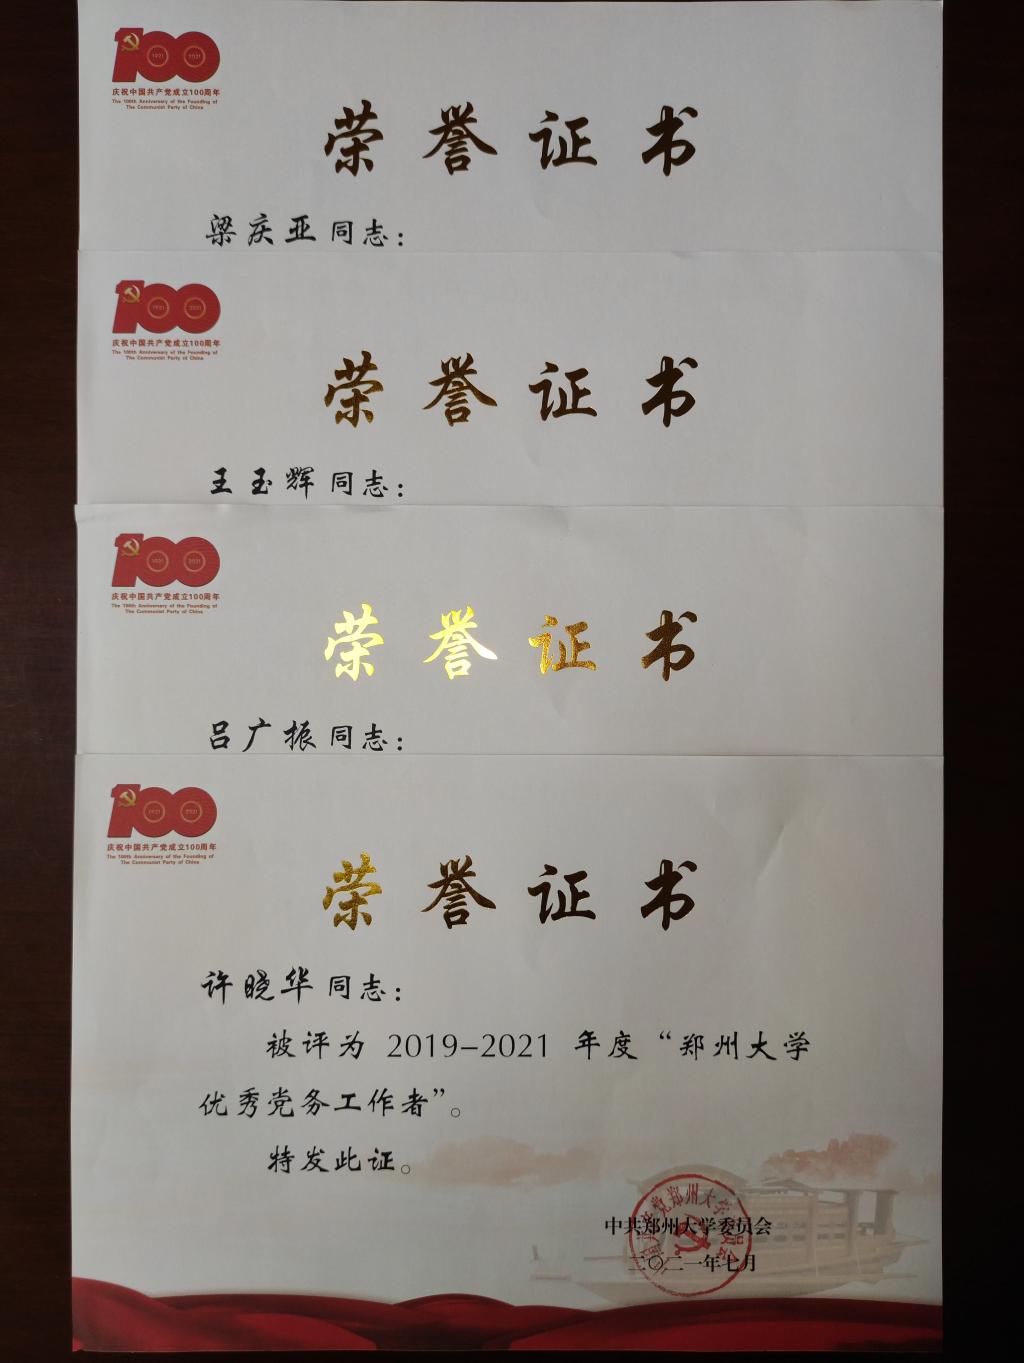 1921 2021
庆祝中国共产党成立100周年
The 100th Anniversary of the Founding of
The Communist Party of China
荣誉证书
梁庆亚同志：
1921 2021
庆祝中国共产党成立100周年
The 100th Anniversary of the Founding of
The Communist Party of China
荣誉证书
王玉辉同志：
1921 2021
庆祝中国共产党成立100周年
The 100th Anniversary of the Founding of
The Communist Party of China
荣誉证书
吕广振同志：
1921 2021
庆祝中国共产党成立100周年
The 100th Anniversary of the Founding of
The Communist Party of China
荣誉证书
许晓华同志：
被评为 2019-2021 年度“郑州大学
优秀党务工作者”。
特发此证。
中共郑州大学委员会
二〇二一年七月
中国共产党郑州大学委员会